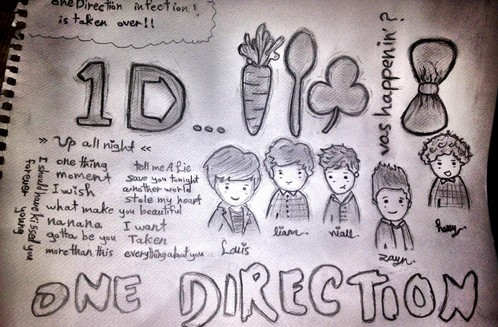 one Direction infection!
is taken over!!
1D...
vas happenin'?
» Up all night «
one thing
moment
I wish
what make you beautiful
na na na
gotta be you
more than this
tell me A Lie
save you tonight
another world
stole my heart
I want
Taken
everything about you
I should have kissed you
forever young
Louis
liam.
niall.
zayn.
Harry.
ONE DIRECTION